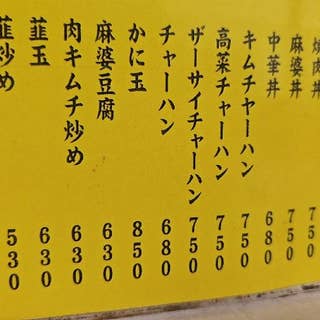 焼肉丼 750
麻婆丼 750
中華丼 680
キムチャーハン 750
高菜チャーハン 750
ザーサイチャーハン 750
チャーハン 680
かに玉 850
麻婆豆腐 630
肉キムチ炒め 630
韮玉 630
韮炒め 530